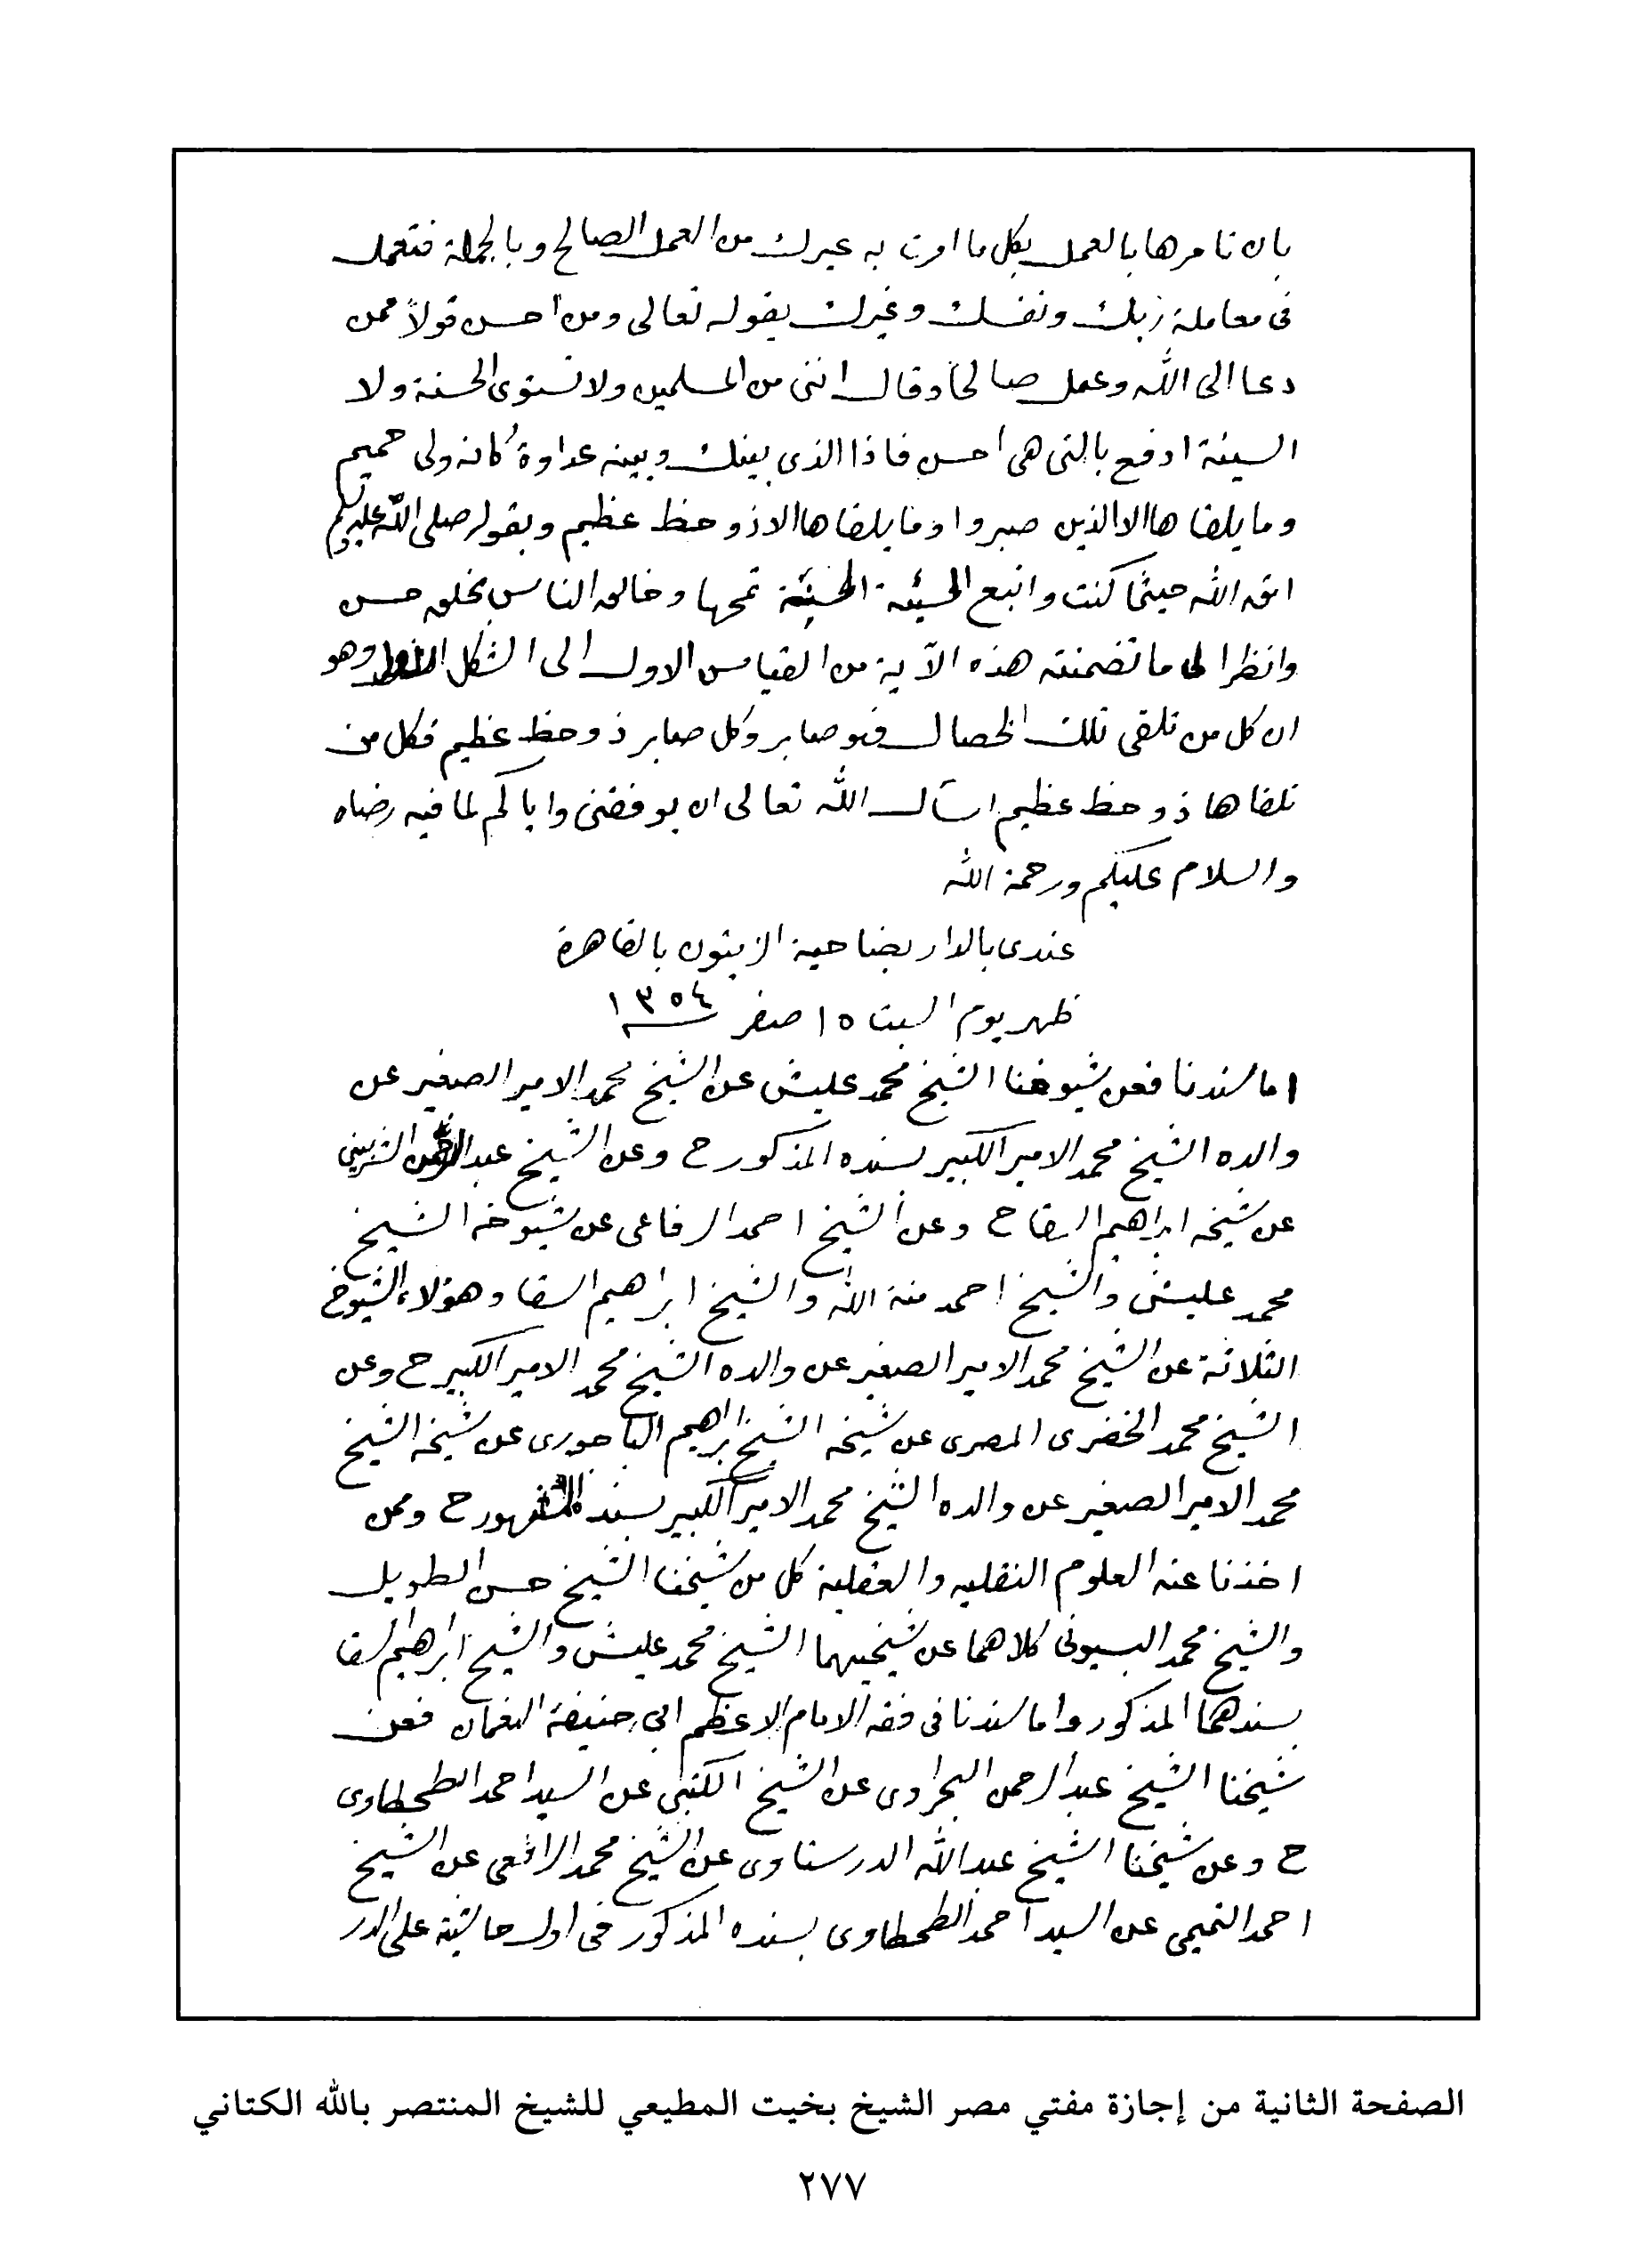 بان تامرها بالعمل بكل ما امرت به غيرك من العمل الصالح وبالجملة فتعمل
فى معاملة ربك ونفسك وغيرك بقوله تعالى ومن احسن قولاً ممن
دعا الى الله وعمل صالحاً وقال اننى من المسلمين ولا تستوى الحسنة ولا
السيئة ادفع بالتى هى احسن فاذا الذى بينك وبينه عداوة كانه ولى حميم
وما يلقاها الا الذين صبروا وما يلقاها الا ذو حظ عظيم وبقوله صلى الله عليه وسلم
اتق الله حيثما كنت واتبع السيئة الحسنة تمحها وخالق الناس بخلق حسن
وانظر الى ما تضمنته هذه الآية من القياس الاول الى الشكل الاول وهو
ان كل من تلقى تلك الخصال فهو صابر وكل صابر ذو حظ عظيم فكل من
تلقاها ذو حظ عظيم اسأل الله تعالى ان يوفقنى واياكم لما فيه رضاه
والسلام عليكم ورحمة الله
عندى بالدار بضاحية الزيتون بالقاهرة
ظهر يوم السبت ١٥ صفر ١٣٥٤
اما سندنا فعن شيوخنا الشيخ محمد عليش عن الشيخ محمد الامير الصغير عن
والده الشيخ محمد الامير الكبير بسنده المذكور ح وعن الشيخ عبد الرحمن الشربينى
عن شيخه ابراهيم السقا ح وعن الشيخ احمد الرفاعى عن شيوخه الشيخ
محمد عليش والشيخ احمد منة الله والشيخ ابراهيم السقا وهؤلاء الشيوخ
الثلاثة عن الشيخ محمد الامير الصغير عن والده الشيخ محمد الامير الكبير ح وعن
الشيخ محمد الخضرى المصرى عن شيخه الشيخ ابراهيم الباجورى عن شيخه الشيخ
محمد الامير الصغير عن والده الشيخ محمد الامير الكبير بسنده المشهور ح وممن
اخذنا عنه العلوم النقليه والعقلية كل من شيخنا الشيخ حسن الطويل
والشيخ محمد البسيونى كلاهما عن شيخيهما الشيخ محمد عليش والشيخ ابراهيم السقا
بسندهما المذكور واما سندنا فى فقه الامام الاعظم ابى حنيفة النعمان فعن
شيخنا الشيخ عبد الرحمن البحراوى عن الشيخ الكتبى عن السيد احمد الطحطاوى
ح وعن شيخنا الشيخ عبد الله الدرستاوى عن الشيخ محمد الرافعى عن الشيخ
احمد التميمى عن السيد احمد الطحطاوى بسنده المذكور فى اول حاشيته على الدر
الصفحة الثانية من إجازة مفتي مصر الشيخ بخيت المطيعي للشيخ المنتصر بالله الكتاني
٢٧٧